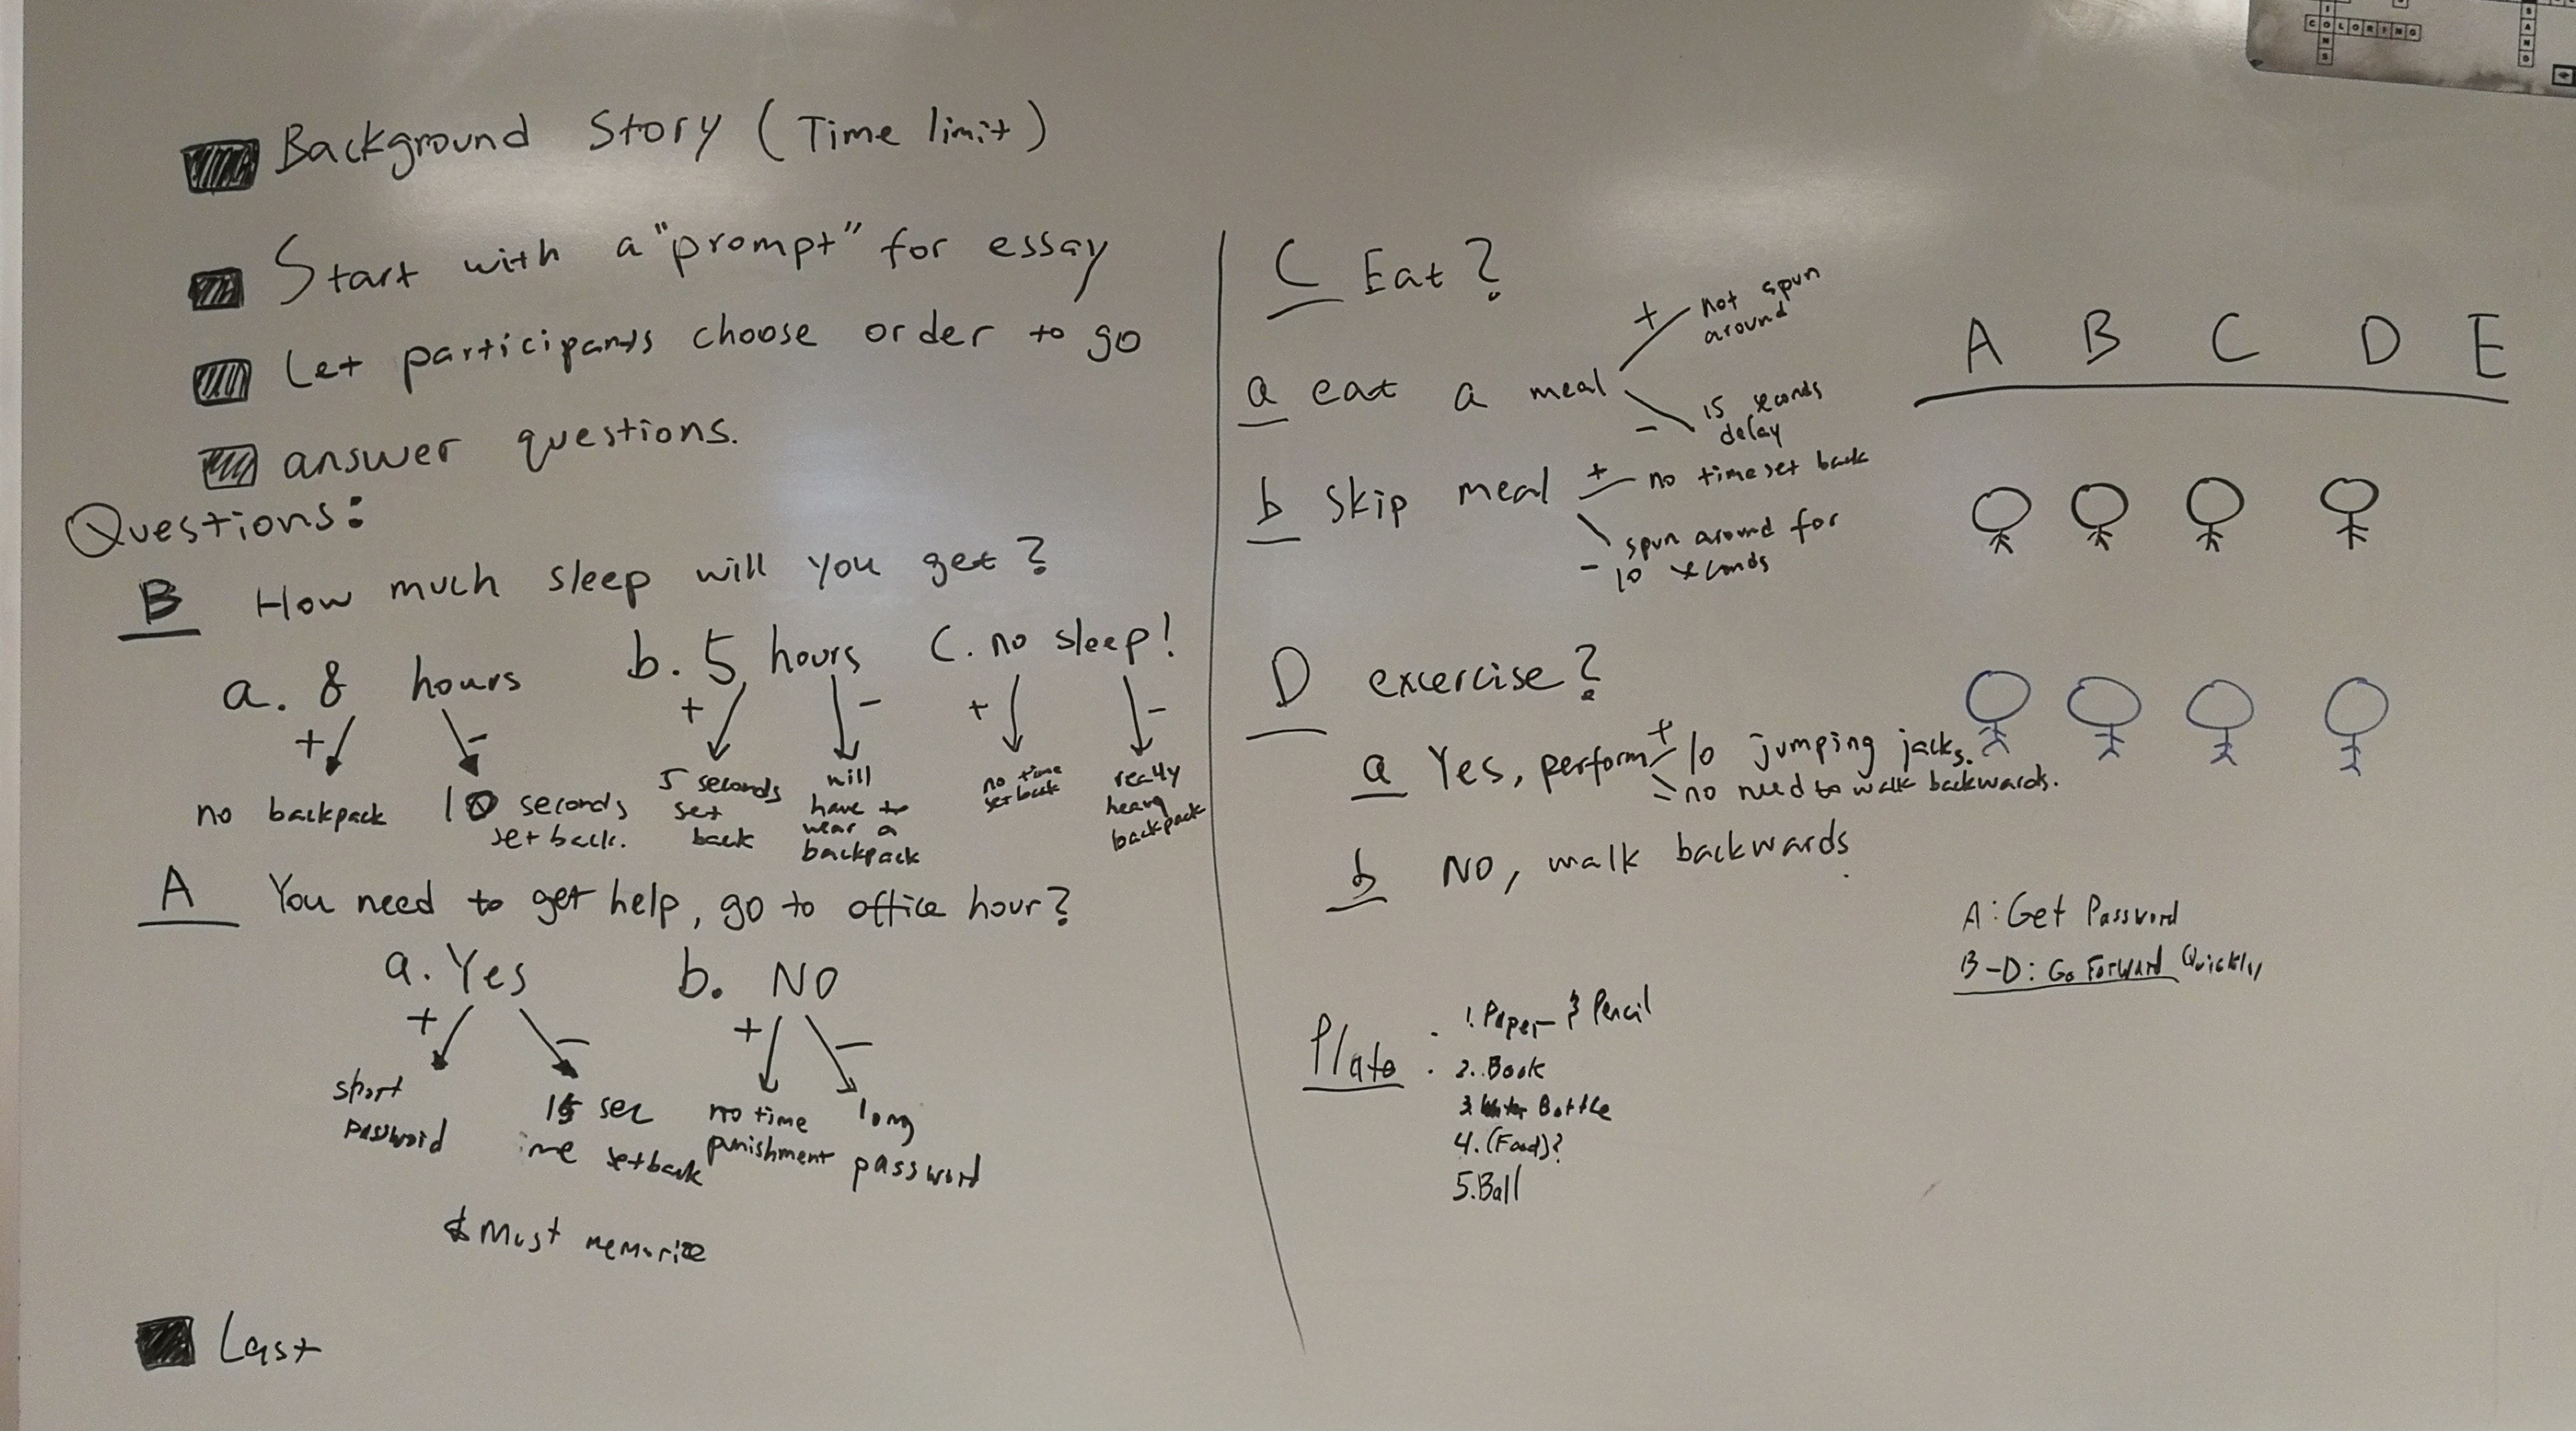 Background Story (Time limit)
Start with a "prompt" for essay
Let participants choose order to go
answer questions.
Questions:
B How much sleep will you get?
a. 8 hours
+ -
no backpack
10 seconds
set back.
b. 5 hours
+ -
5 seconds
set
back
will
have to
wear a
backpack
C. no sleep!
+ -
no time
set back
really
heavy
backpack
A You need to get help, go to office hour?
a. Yes
+ -
short
password
15 sec
ime setback
b. NO
+ -
no time
punishment
long
password
& Must memorize
Last
C Eat?
a eat a meal
+ not spun
around
- 15 seconds
delay
b skip meal
+ no time set back
- spun around for
10 seconds
D excercise?
a Yes, perform + 10 jumping jacks.
- no need to walk backwards.
b NO, walk backwards
Plate:
1. Paper & Pencil
2. Book
3. Water Bottle
4. (Food)?
5. Ball
A B C D E
A: Get Password
B-D: Go Forward Quickly
COLORING
SAND